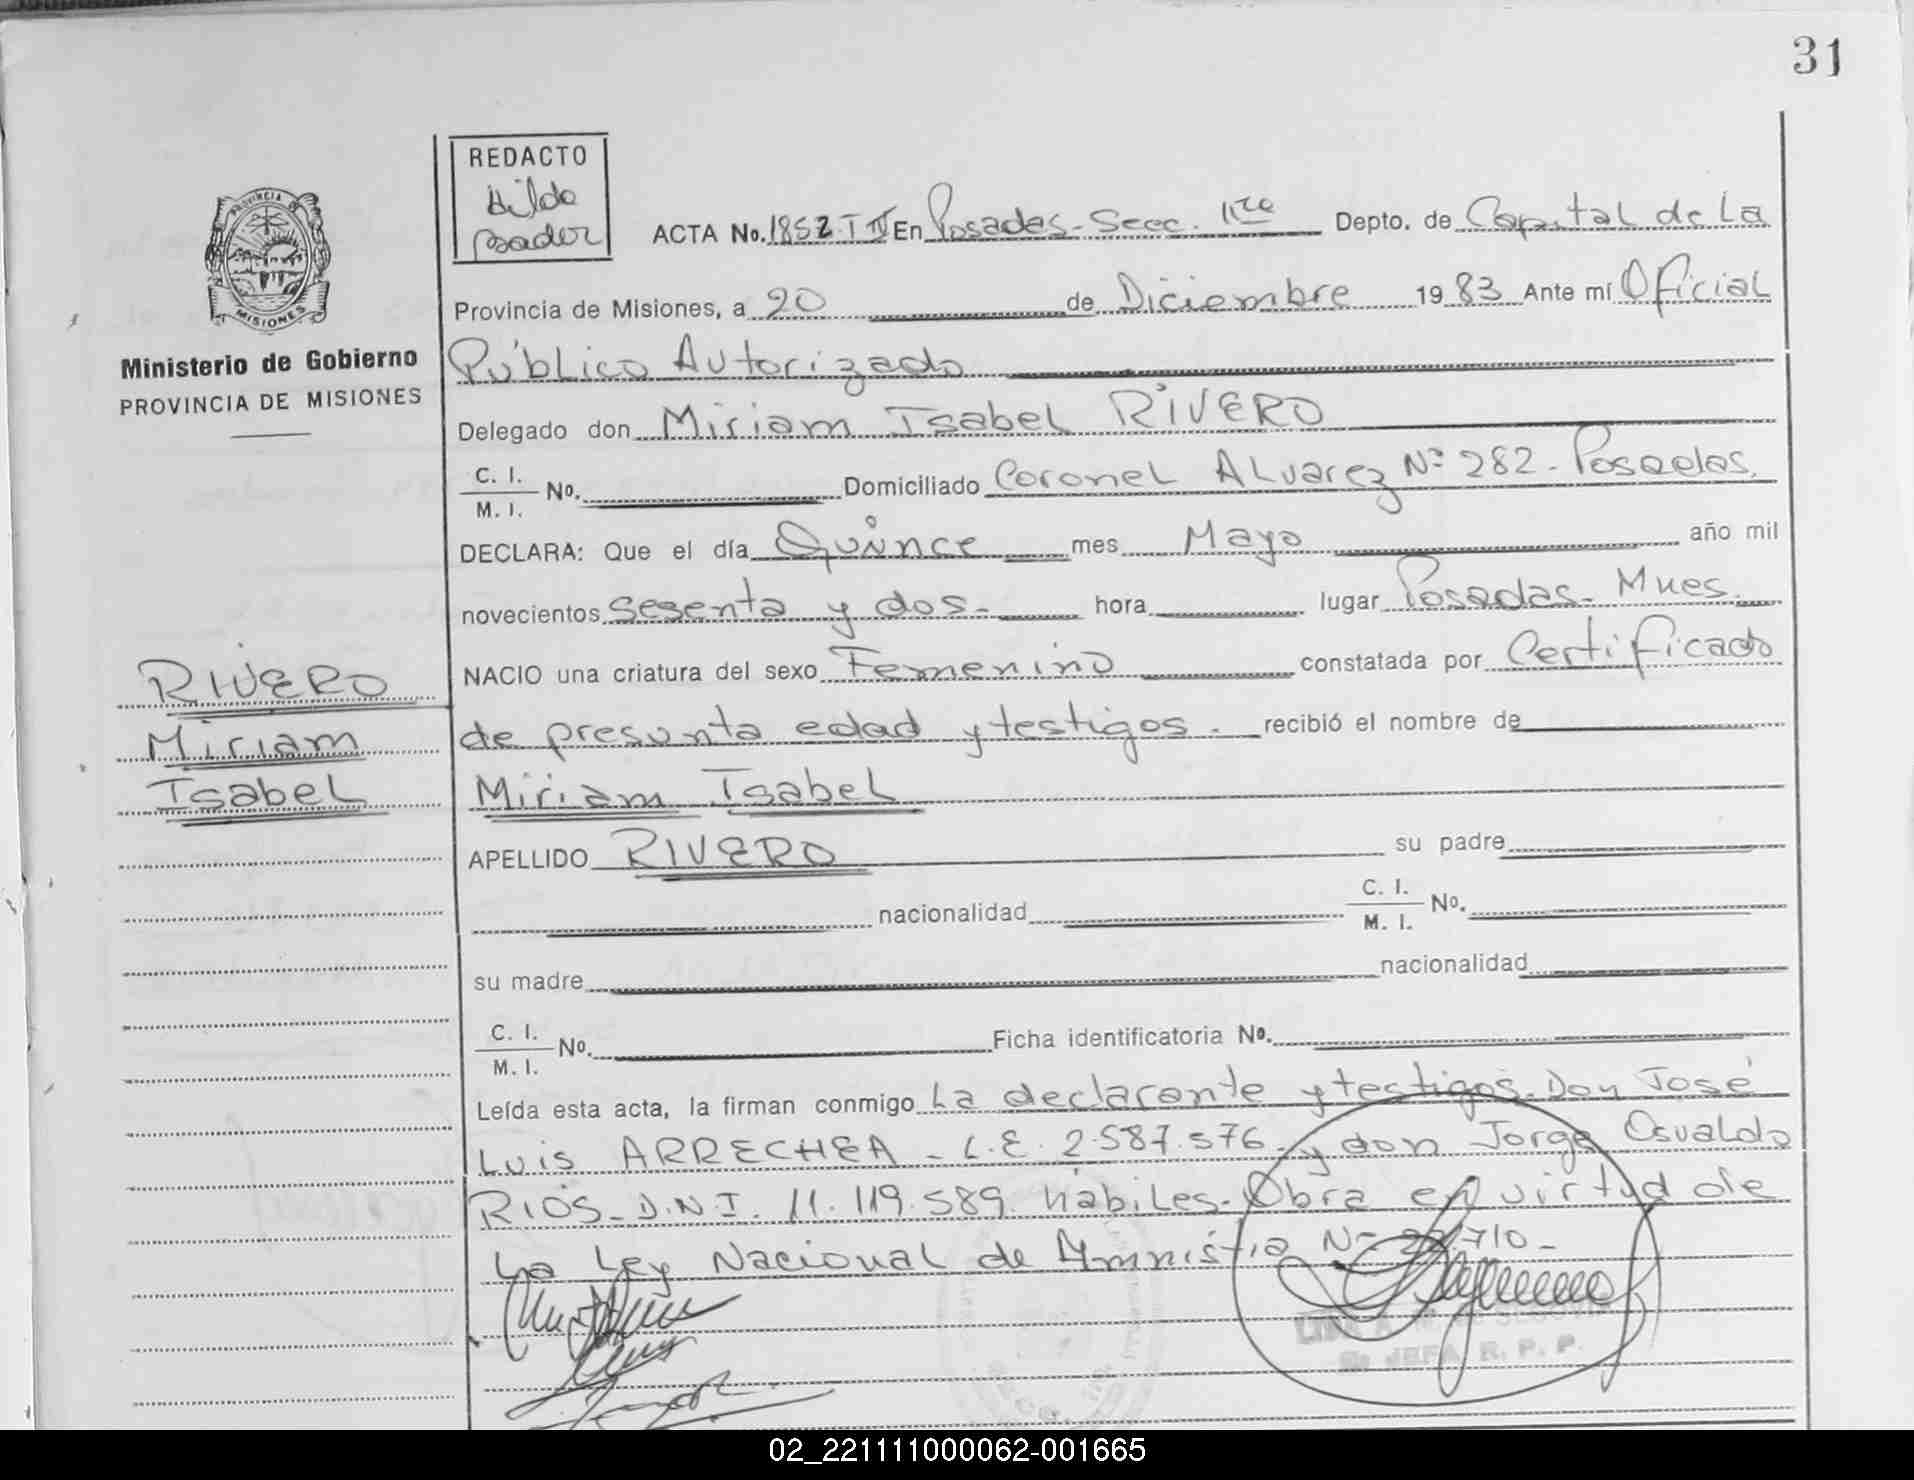 31
REDACTO
Hilda
Bader
ACTA No. 1852 T IV En Posadas - Secc. 1ra Depto. de Capital de La
Provincia de Misiones, a 20 de Diciembre 1983 Ante mí Oficial
Público Autorizado
Delegado don Miriam Isabel RIVERO
C. I.
M. I. No. Domiciliado Coronel Alvarez Nº 282 - Posadas.
DECLARA: Que el día Quince mes Mayo año mil
novecientos sesenta y dos - hora lugar Posadas - Mnes.
NACIO una criatura del sexo Femenino constatada por Certificado
de presunta edad y testigos. recibió el nombre de
Miriam Isabel
APELLIDO RIVERO su padre
nacionalidad C. I.
M. I. No.
su madre nacionalidad
C. I.
M. I. No. Ficha identificatoria No.
Leída esta acta, la firman conmigo La declarante y testigos - Don José
Luis ARRECHEA - L.E. 2.587.576 - y don Jorge Osvaldo
RIOS - D.N.I. 11.119.589 hábiles - Obra en virtud de
La Ley Nacional de Amnistia Nº 22.710 -
MISIONES
Ministerio de Gobierno
PROVINCIA DE MISIONES
RIVERO
Miriam
Isabel
JEFA R. P. P.
02_221111000062-001665